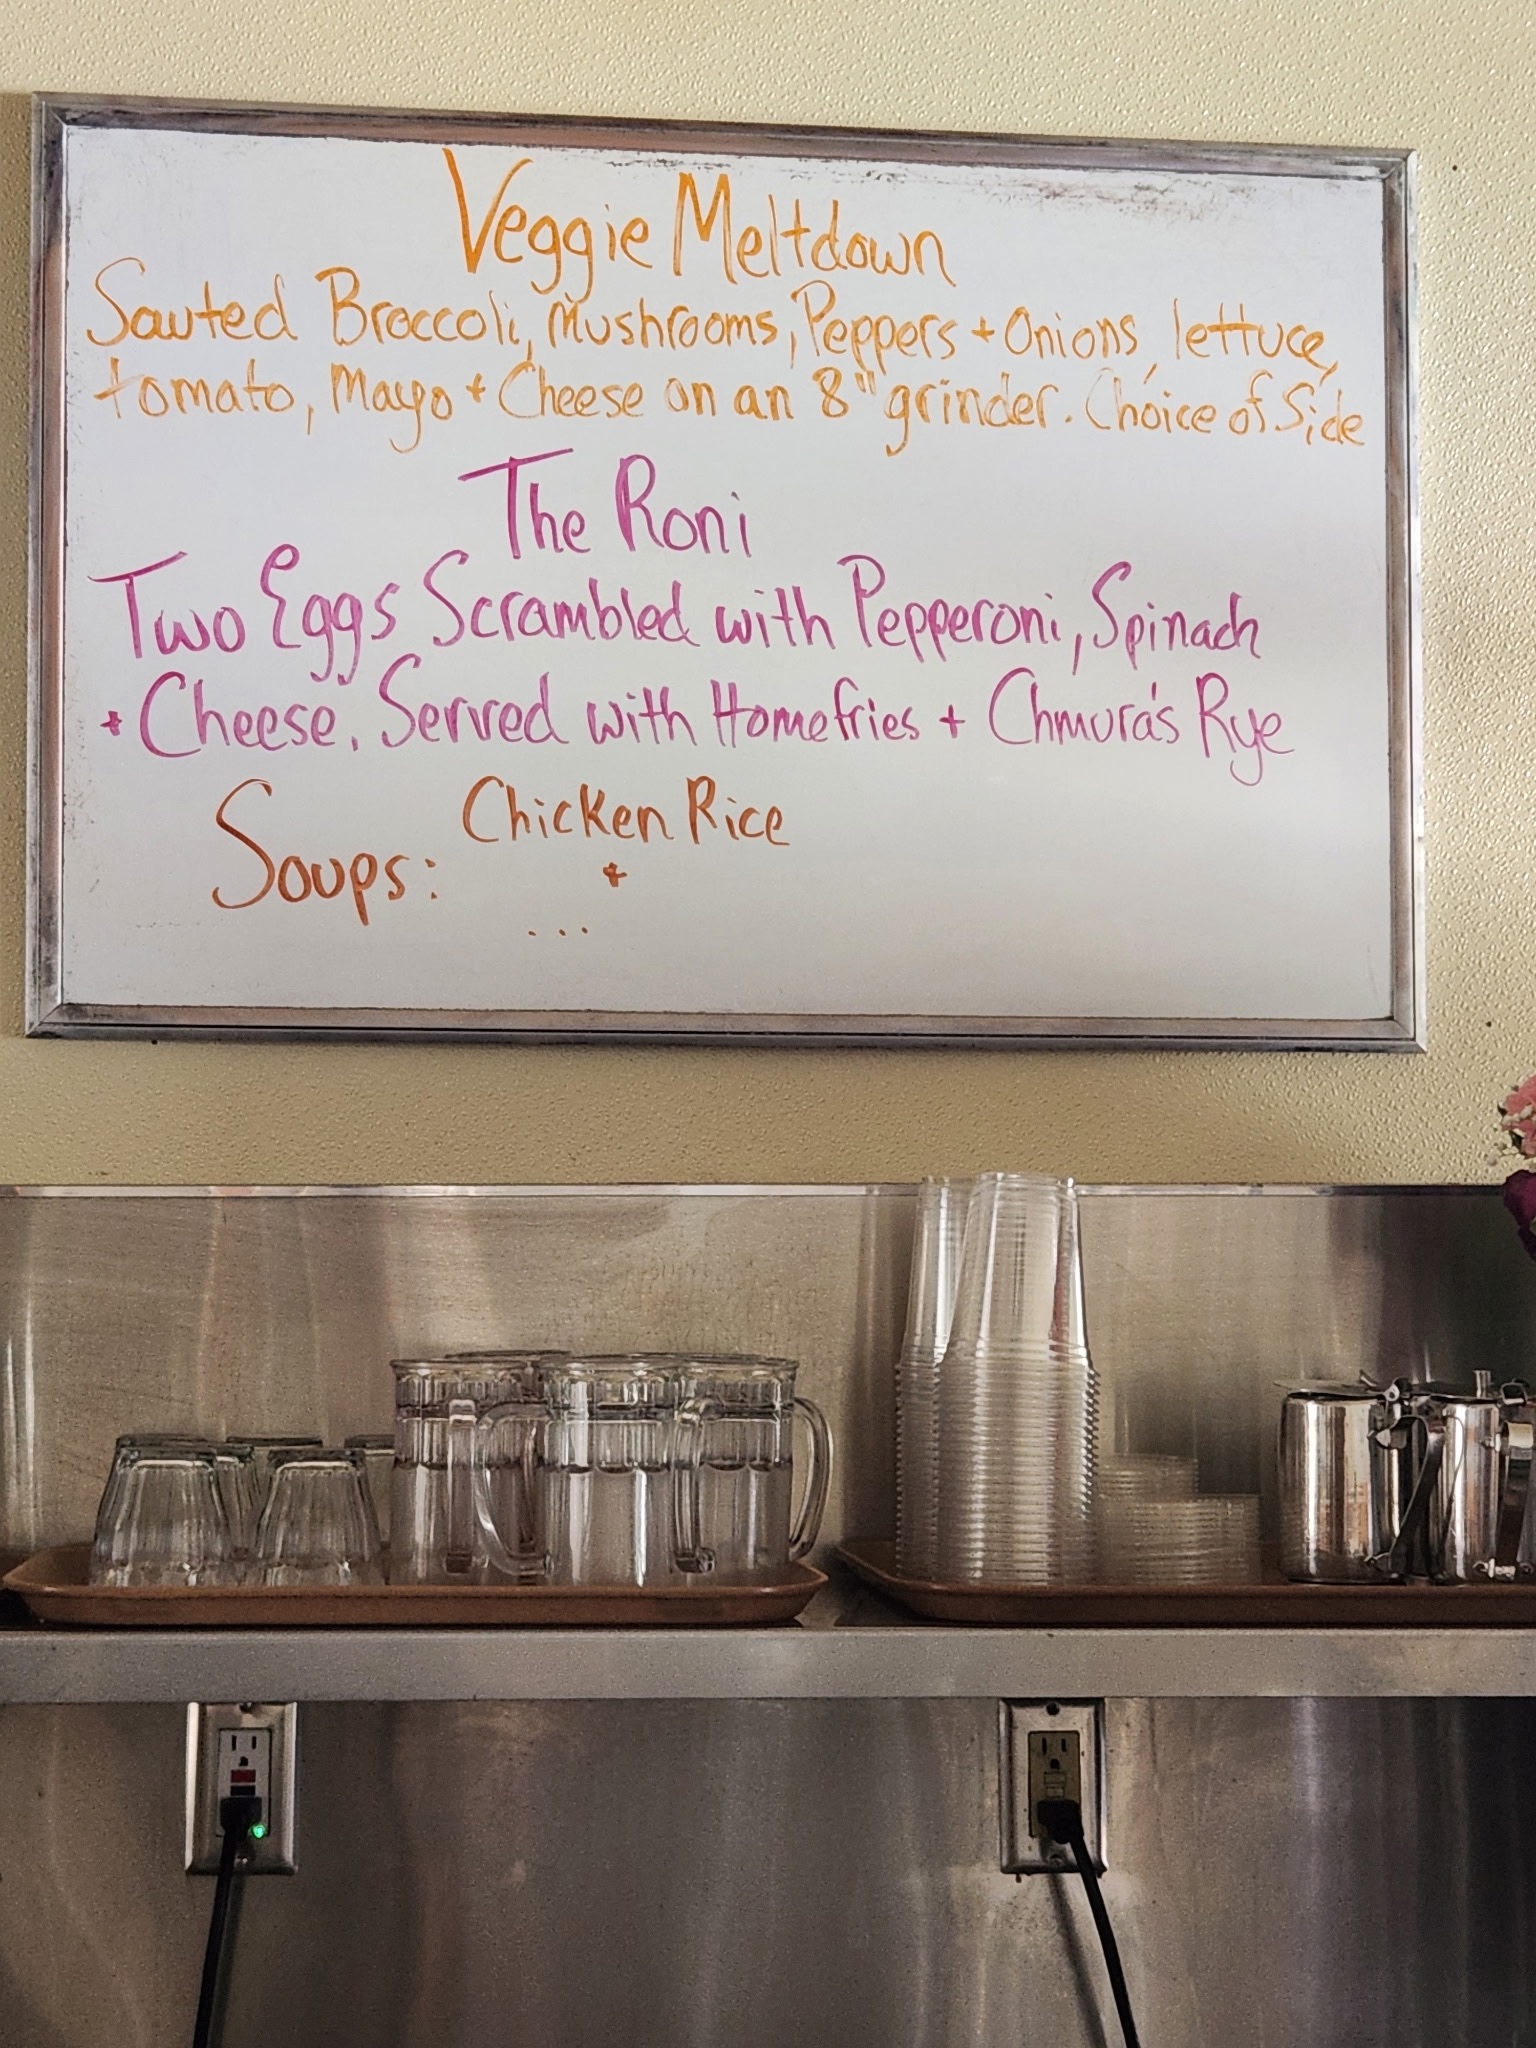 Veggie Meltdown
Sauted Broccoli, Mushrooms, Peppers + Onions, lettuce,
tomato, Mayo + Cheese on an 8" grinder. Choice of Side
The Roni
Two Eggs Scrambled with Pepperoni, Spinach
+ Cheese. Served with Homefries + Chmura's Rye
Soups: Chicken Rice
+
...